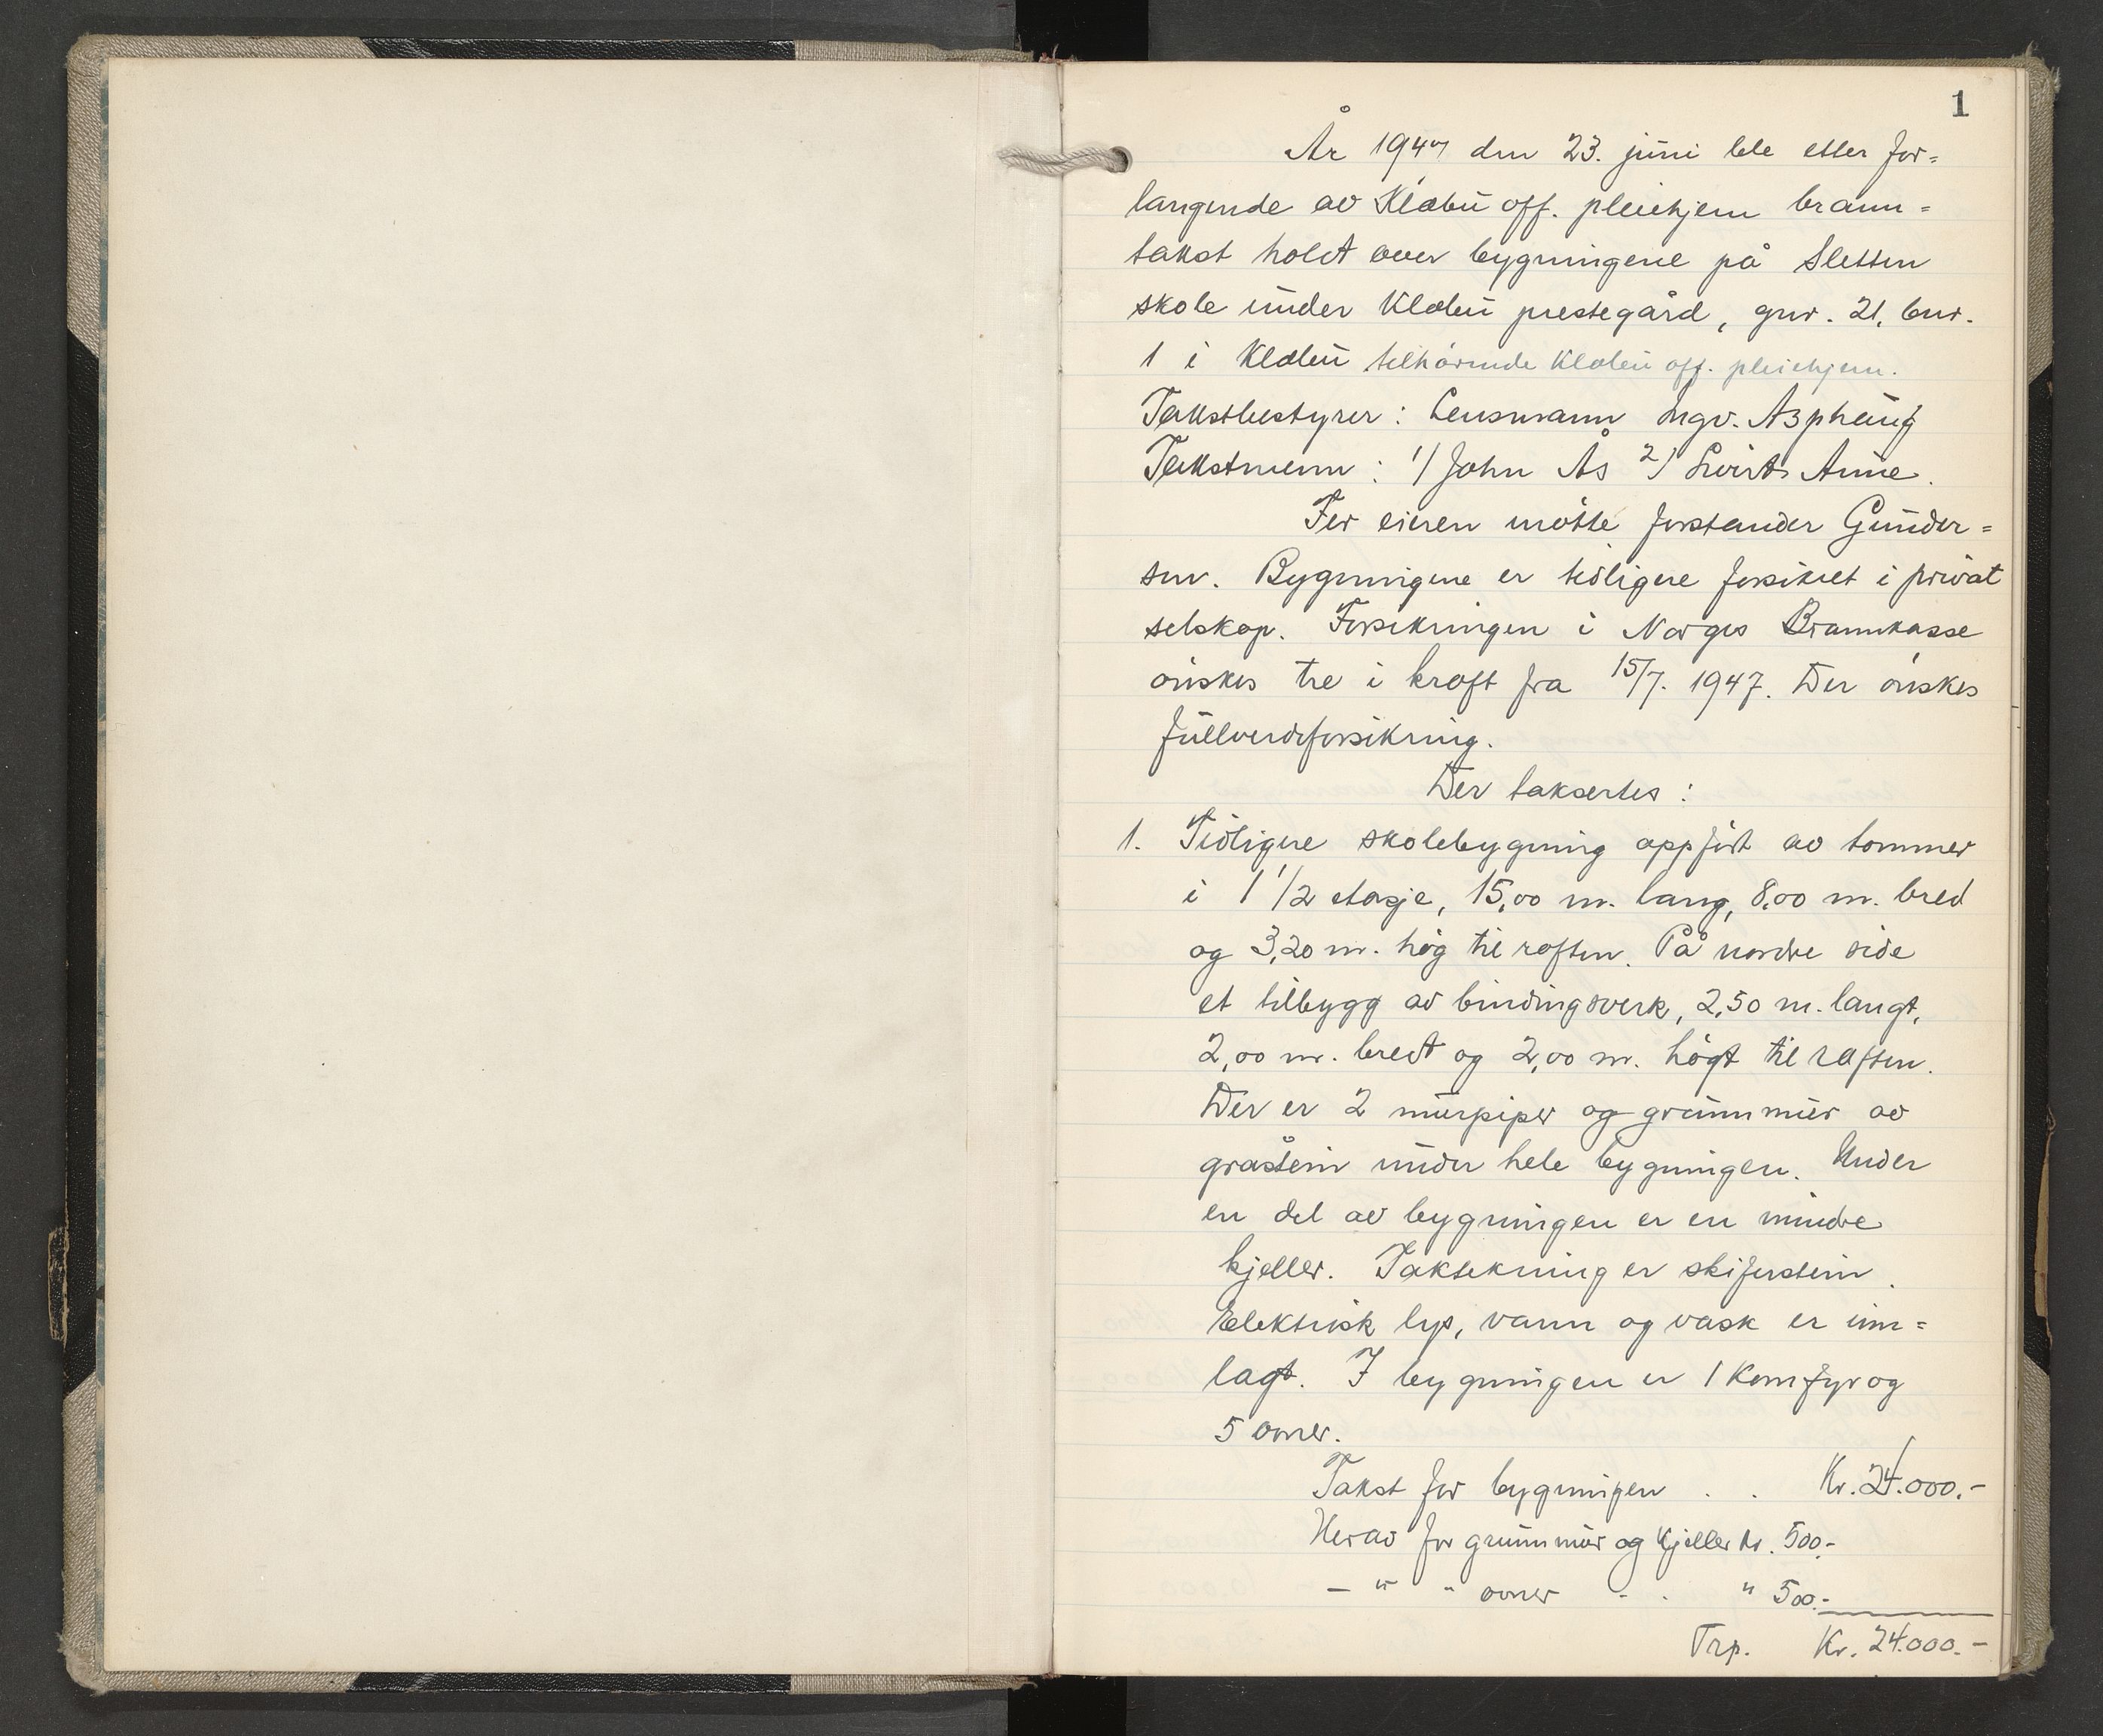 1
År 1947 den 23. juni ble etter for=
langende av Klæbu off. pleiehjem brann=
takst holdt over bygningene på Sletten
skole under Klæbu prestegård, gnr. 21, bnr.
1 i Klæbu tilhørende Klæbu off. pleiehjem.
Takstbestyrer: Lensmann Ingv. Asphaug
Takstmenn: 1/ John Ås 2/ Sivert Aune.
For eieren møtte forstander Gunder=
sen. Bygningene er tidligere forsikret i privat
selskap. Forsikringen i Norges Brannkasse
ønskes tre i kraft fra 15/7. 1947. Der ønskes
fullverdiforsikring.
Der taksertes:
1. Tidligere skolebygning oppført av tømmer
i 1 1/2 etasje, 15,00 m. lang, 8,00 m. bred
og 3,20 m. høg til raften. På nordre side
et tilbygg av bindingsverk, 2,50 m. langt,
2,00 m. bredt og 2,00 m. høgt til raften.
Der er 2 murpiper og grunnmur av
gråstein under hele bygningen. Under
en del av bygningen er en mindre
kjeller. Taktekning er skiferstein.
Elektrisk lys, vann og vask er inn=
lagt. I bygningen er 1 komfyr og
5 ovner.
Takst for bygningen . . Kr. 24.000.-
Herav for grunnmur og kjeller kr. 500.-
- " - ovner - . " 500.-
Trp. Kr. 24.000.-